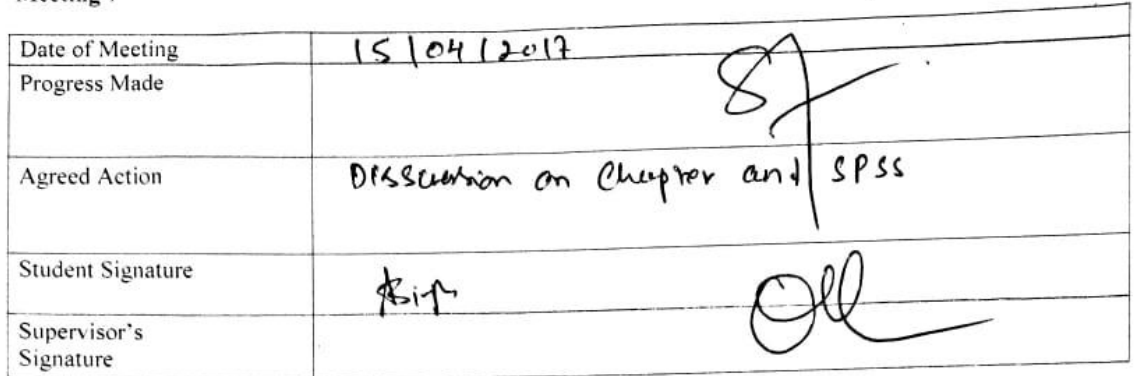 Date of Meeting 15/04/2017
Progress Made
Agreed Action Disscussion on Chapter and SPSS
Student Signature
Supervisor's
Signature